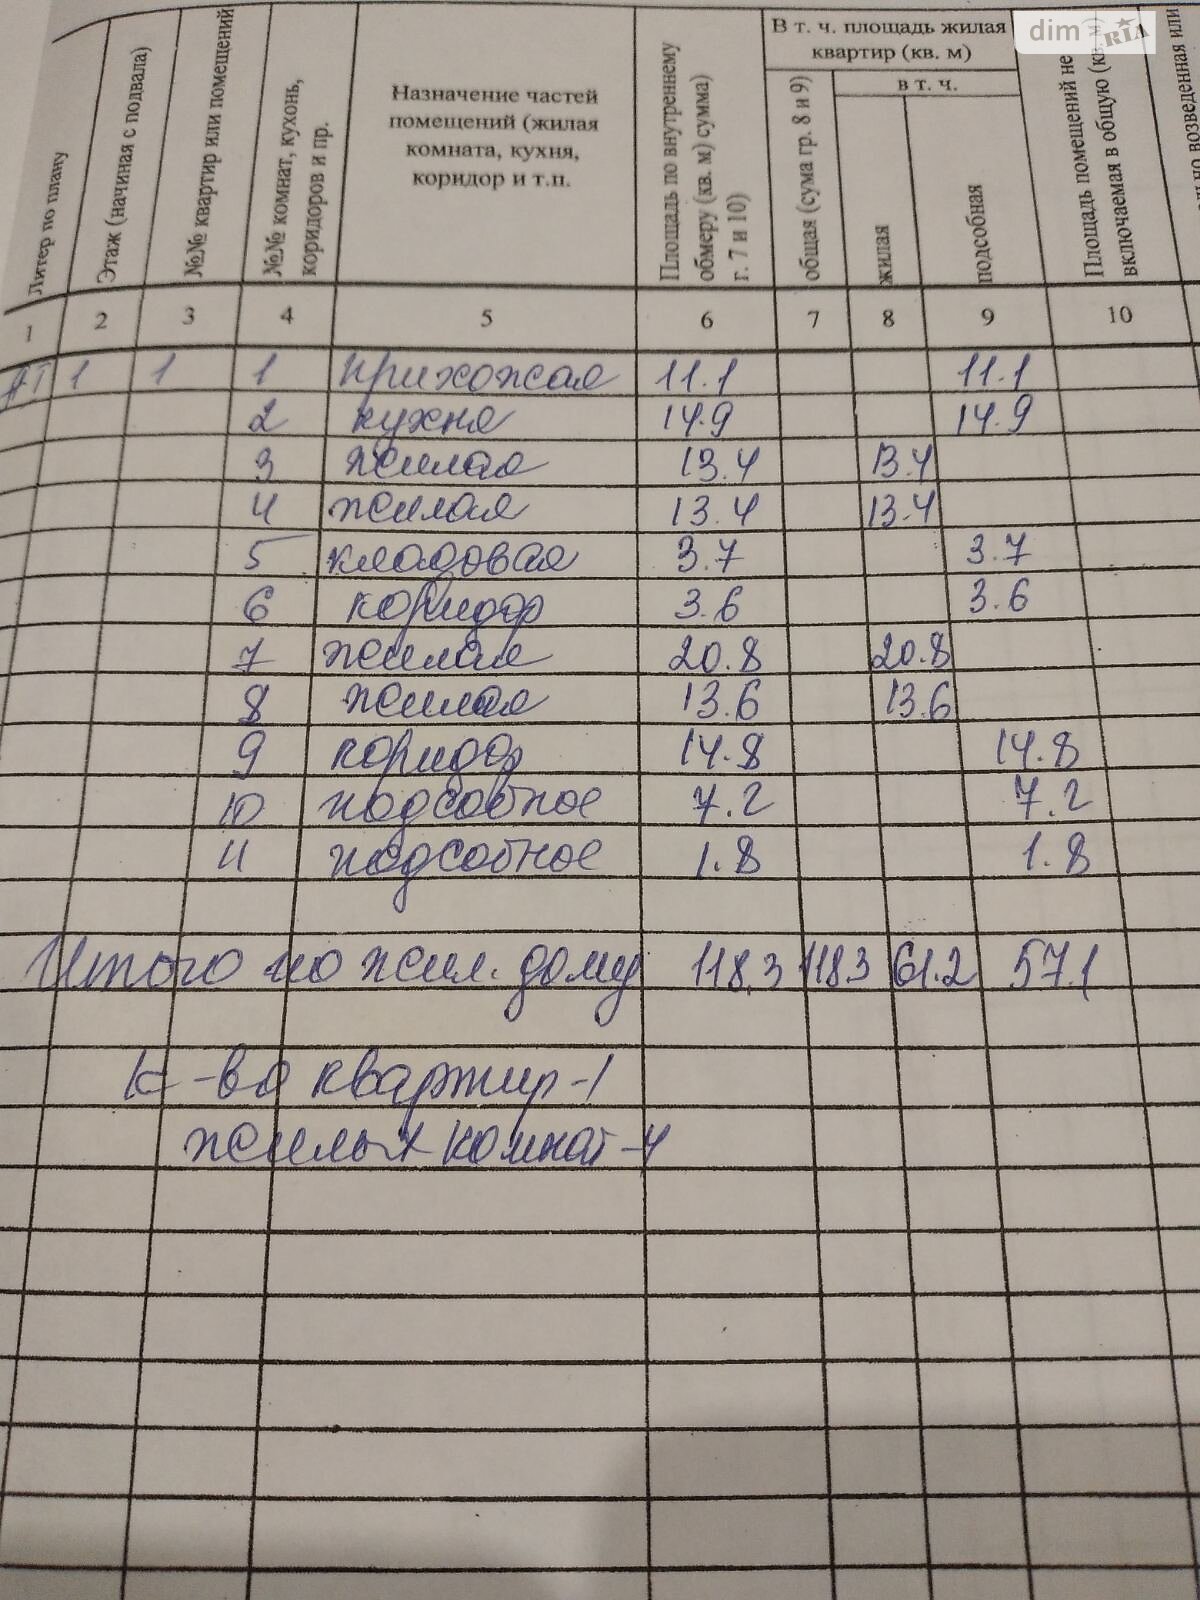 dim RIA
Литер по плану
Этаж (начиная с подвала)
№№ квартир или помещений
№№ комнат, кухонь,
коридоров и пр.
Назначение частей
помещений (жилая
комната, кухня,
коридор и т.п.
Площадь по внутреннему
обмеру (кв. м) сумма)
г. 7 и 10)
В т. ч. площадь жилая
квартир (кв. м)
общая (сума гр. 8 и 9)
в т. ч.
жилая
подсобная
Площадь помещений не
включаемая в общую (кв. м)
возведенная или
1 2 3 4 5 6 7 8 9 10
1 1 1 прихожая 11.1 11.1
2 кухня 14.9 14.9
3 жилая 13.4 13.4
4 жилая 13.4 13.4
5 кладовая 3.7 3.7
6 коридор 3.6 3.6
7 жилая 20.8 20.8
8 жилая 13.6 13.6
9 коридор 14.8 14.8
10 подсобное 7.2 7.2
11 подсобное 1.8 1.8
Итого по жил. дому 118,3 118.3 61.2 57.1
К-во квартир-1
жилых комнат-4